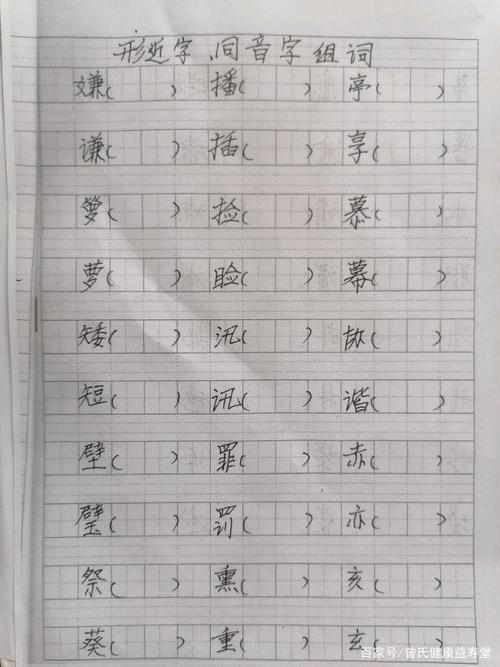 形近字、同音字组词
嫌( ) 播( ) 亭( )
谦( ) 插( ) 享( )
箩( ) 捡( ) 慕( )
萝( ) 睑( ) 幕( )
矮( ) 汛( ) 协( )
短( ) 讯( ) 谐( )
壁( ) 罪( ) 赤( )
璧( ) 罚( ) 亦( )
祭( ) 熏( ) 亥( )
葵( ) 重( ) 玄( )
百家号/曾氏健康益寿堂